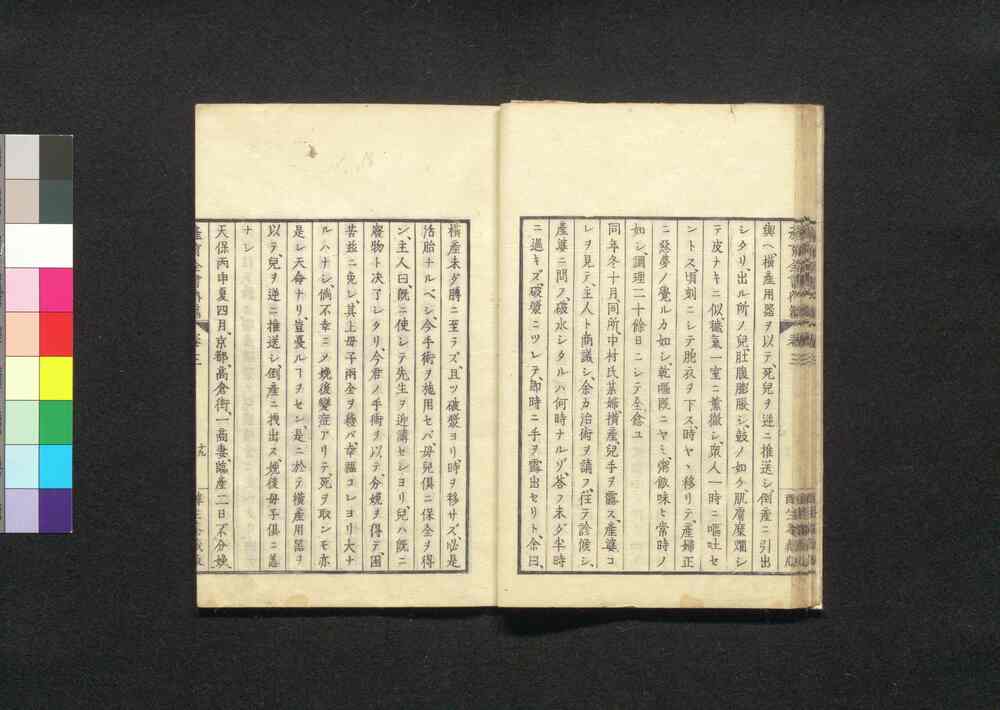 與ヘ横産用器ヲ以テ、死兒ヲ逆ニ推送シ、倒産ニ引出
シタリ、出ル所ノ兒、肚腹膨脹シ、鼓ノ如ク、肌膚糜爛シ
テ皮ナキニ似、穢氣一室ニ薫徹シ、衆人一時ニ嘔吐セ
ントス、頃刻ニシテ胞衣ヲ下ス、時ヤヽ移リテ、產婦正
ニ惡夢ノ覺ルカ如シ、乾嘔既ニヤミ、粥飲味ヒ常時ノ
如シ、調理二十餘日ニシテ全愈ユ
同年冬十月、同所、中村氏某婦、横產、兒手ヲ露ス、產婆コ
レヲ見テ、主人ト商議シ、余カ治術ヲ請フ、往テ診候シ、
產婆ニ問フ、破水シタルハ何時ナルゾ、荅フ、未ダ半時
ニ過キズ、破漿ニツレテ、即時ニ手ヲ露出セリト、余曰、
横產未ダ膊ニ至ラズ、且ツ破漿ヨリ、時ヲ移サズ、必是
活胎ナルベシ、今手術ヲ施用セバ、母兒俱ニ保全ヲ得
ン、主人曰、既ニ使シテ先生ヲ迎請セシヨリ、兒ハ既ニ
廢物ト決了シタリ、今君ノ手術ヲ以テ、分娩ヲ得テ、困
苦茲ニ免レ、其上母子兩全ヲ穫バ、幸福コレヨリ大ナ
ルハナシ、倘不幸ニメ娩後變症アリテ、死ヲ取ンモ亦
是レ天命ナリ、豈憂ルヿヲセン、是ニ於テ横產用器ヲ
以テ、兒ヲ逆ニ推送シ、倒產ニ拽出ス、娩後母子俱ニ恙
ナシ
天保丙申夏四月、京都、高倉街、一商妻、臨産二日不分娩、
卷三
十九